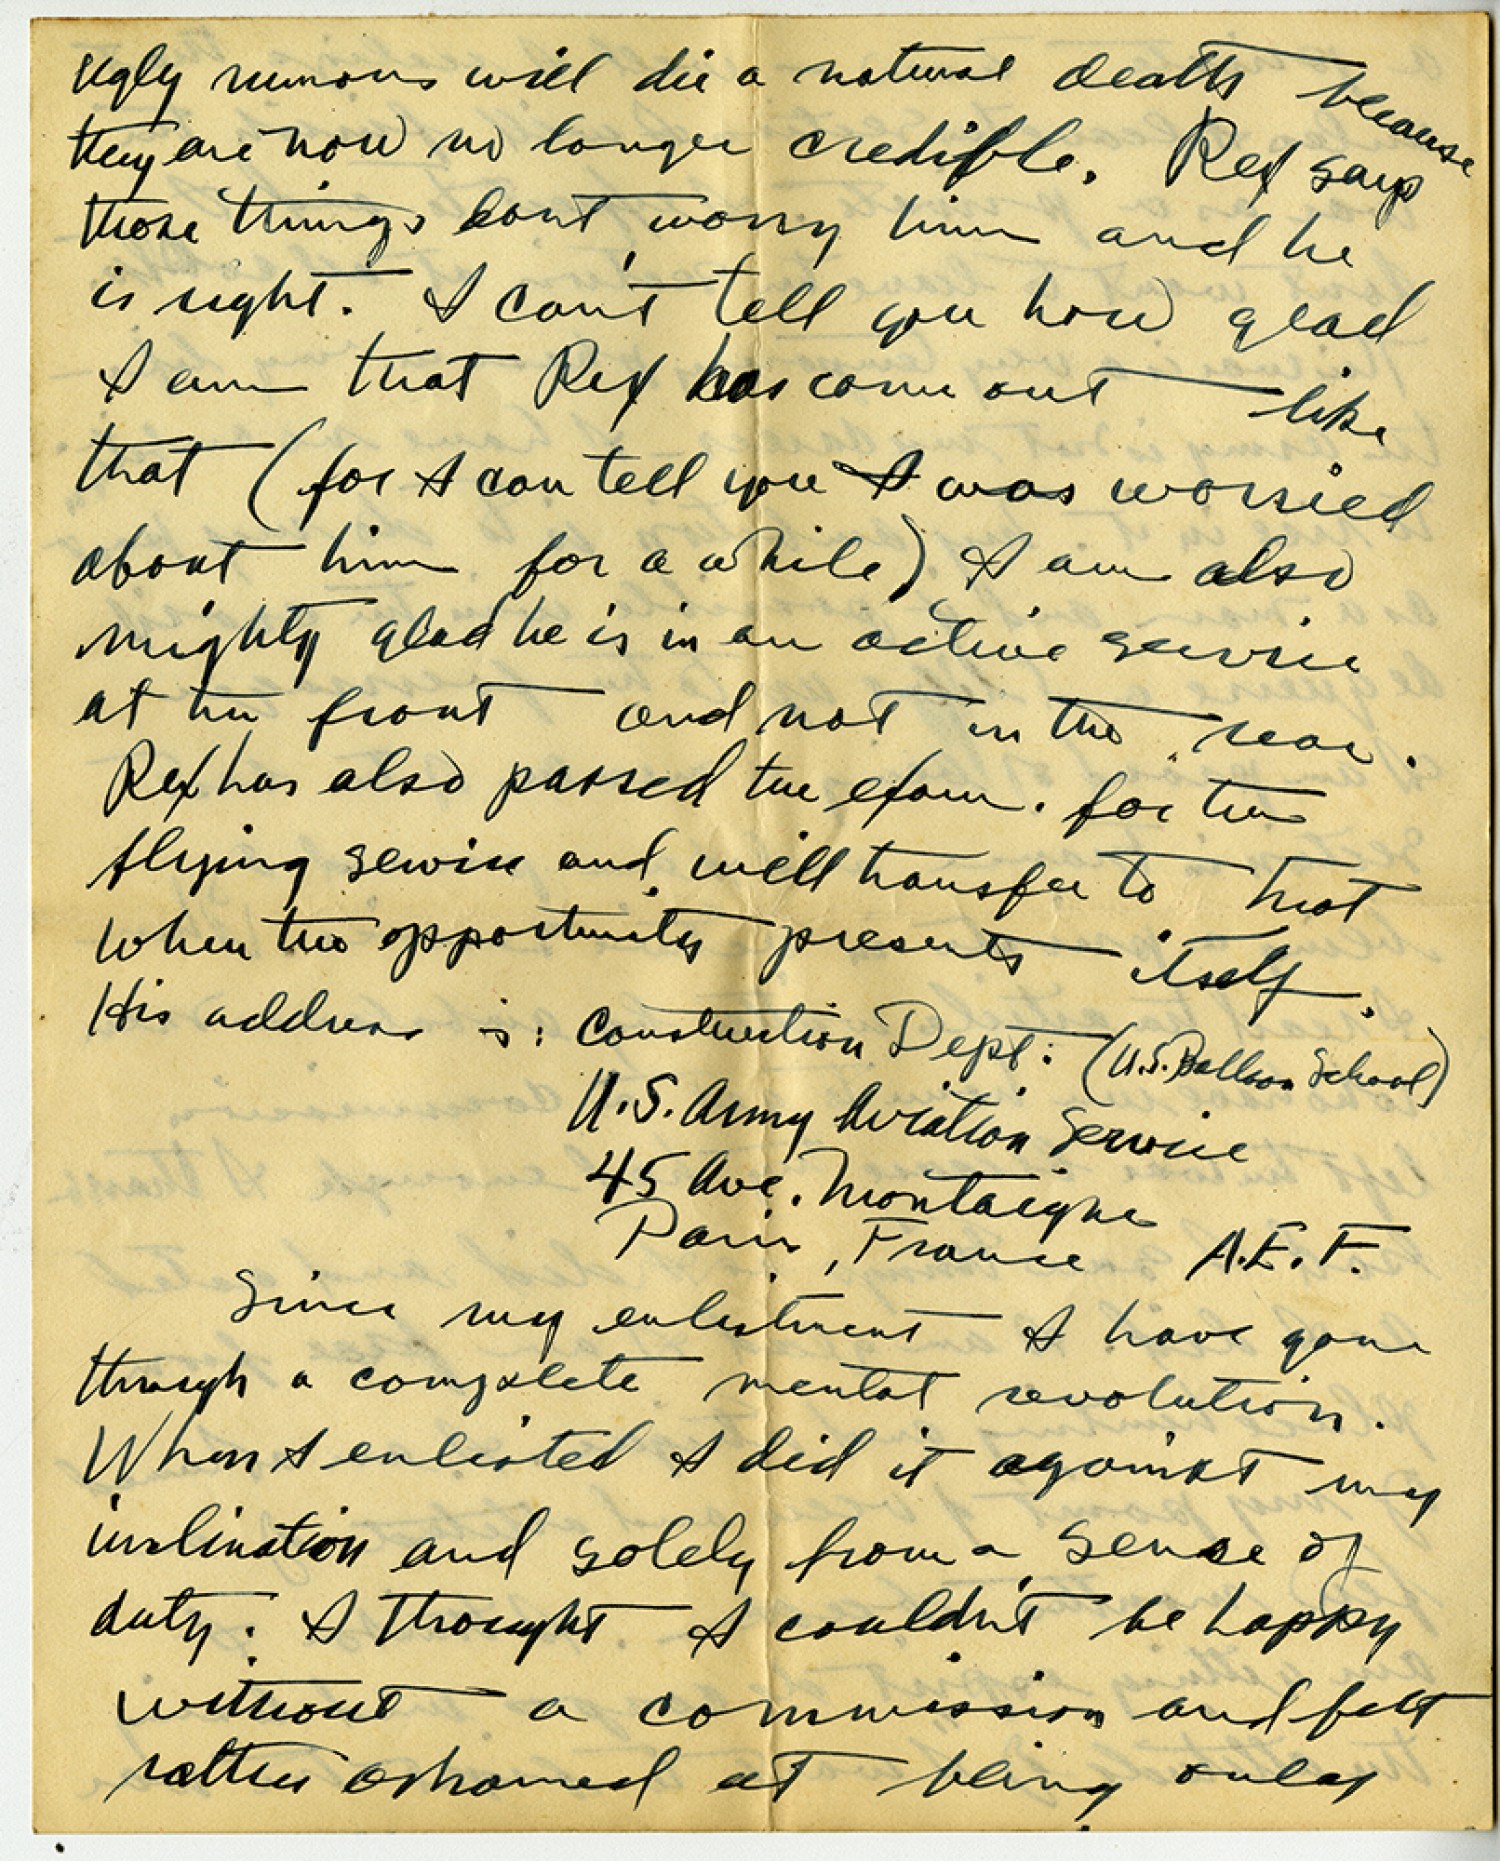 Ugly rumors will die a natural death because
they are now no longer credible. Rex says
those things dont worry him and he
is right. I can't tell you how glad
I am that Rex has come out like
that (for I can tell you I was worried
about him for a while) I am also
mighty glad he is in an active service
at the front and not in the rear.
Rex has also passed the exam. for the
flying service and will transfer to that
when the opportunity presents itself.
His address is: Construction Dept: (U.S. Balloon School)
U.S. Army Aviation Service
45 Ave. Montaigne
Paris, France A.E.F.
Since my enlistment I have gone
through a complete mental revolution.
When I enlisted I did it against my
inclination and solely from a sense of
duty. I thought I couldn't be happy
without a commission and felt
rather ashamed at being only